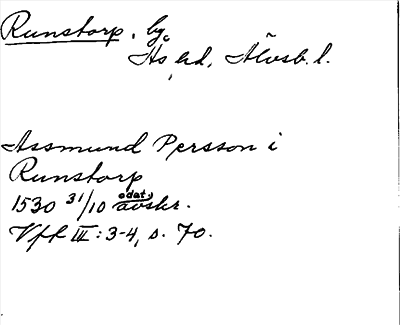 Runstorp, by,
Ås hd, Älvsb. l.
Assmund Persson i
Runstorp
1530 31/10 odat. avskr.
Vfl III: 3-4, s. 70.